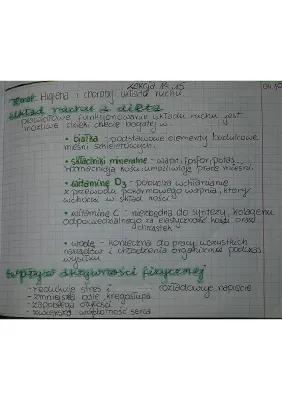 Lekcja 14, 15
Temat: Higiena i choroby układu ruchu.
Układ ruchu i dieta
prawidłowe funkcjonowanie układu ruchu jest
możliwe dzięki diecie bogatej w:
• białka - podstawowe elementy budulcowe
mięśni szkieletowych.
• składniki mineralne - wapń, fosfor, potas
wzmacniają kości, umożliwiają pracę mięśni.
• witaminę D3 - pomaga wchłanianie
z przewodu pokarmowego wapnia, który
wchodzi w skład kości
• witaminę C - niezbędną do syntezy kolagenu
odpowiedzialnego za elastyczność kości oraz
chrząstek
• wodę - konieczna do pracy wszystkich
narządów i chłodzenia organizmu podczas
wysiłku
aktywności fizycznej
- redukuje stres i rozładowuje napięcie
- zmniejsza bóle kręgosłupa
- zapobiega otyłości
- zwiększa wydolność serca